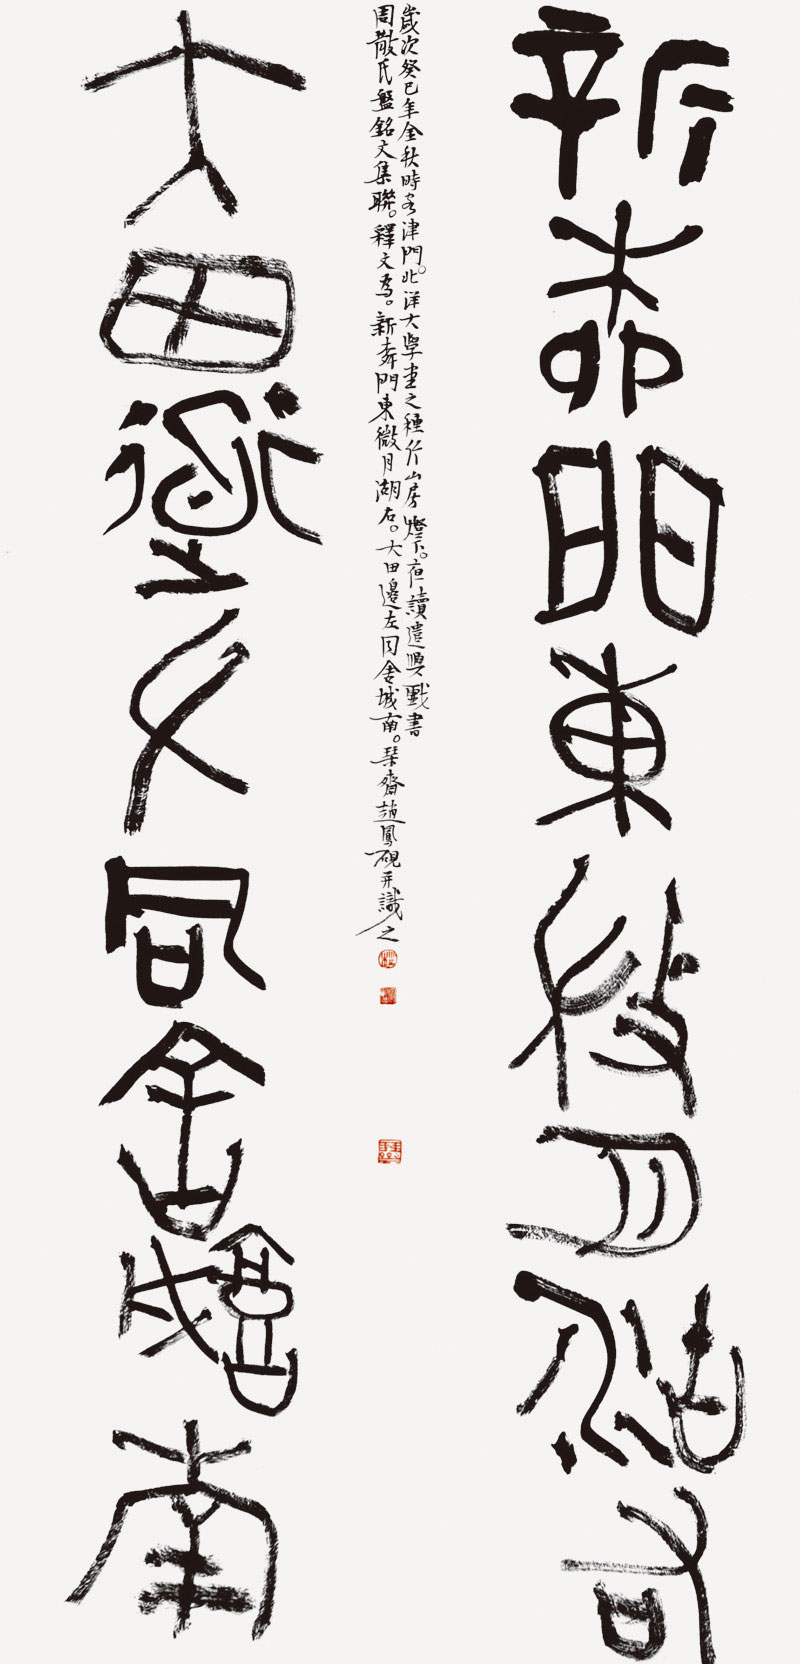 新桺門東微月湖右
歲次癸巳年金秋時客津門。北洋大學堂之種竹山房燈下。夜讀遣興戲書
周散氏盤銘文集聯。釋文為。新桺門東微月湖右。大田邊左同舍城南。琴齋趙鳳硯并識之
大田邊左同舍城南